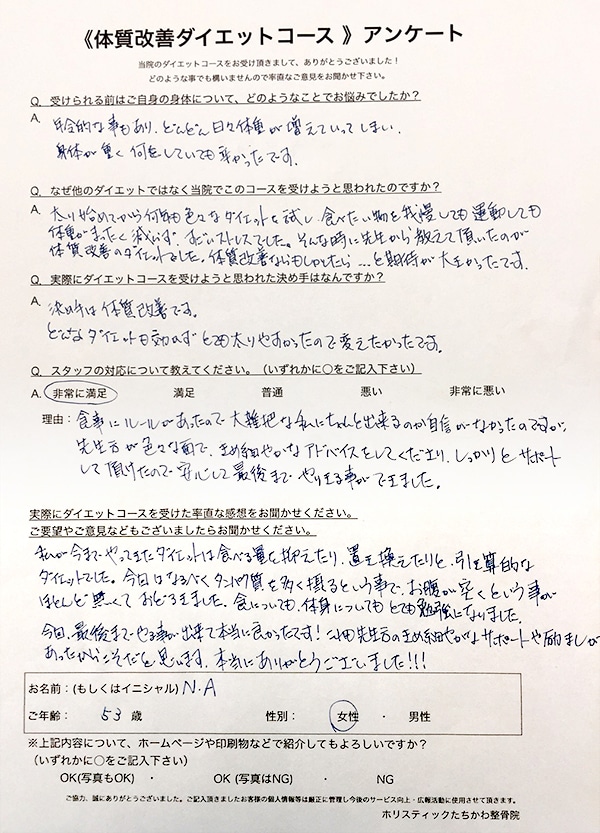 《体質改善ダイエットコース 》アンケート
当院のダイエットコースをお受け頂きまして、ありがとうございました！
どのような事でも構いませんので率直なご意見をお聞かせ下さい。
Q. 受けられる前はご自身の身体について、どのようなことでお悩みでしたか？
A. 年令的な事もあり、どんどん日々体重が増えていってしまい、
身体が重く何をしていても辛かったです。
Q. なぜ他のダイエットではなく当院でこのコースを受けようと思われたのですか？
A. 太り始めてから何年も色々なダイエットを試し、食べたい物を我慢しても運動しても
体重がまったく減らず、すごいストレスでした。そんな時に先生から教えて頂いたのが
体質改善のダイエットでした。体質改善ならもしかしたら…と期待が大きかったです。
Q. 実際にダイエットコースを受けようと思われた決め手はなんですか？
A. 決め手は体質改善です。
どんなダイエットも効かず とても太りやすかったので変えたかったです。
Q. スタッフの対応について教えてください。（いずれかに○をご記入下さい）
A. 非常に満足 満足 普通 悪い 非常に悪い
理由：食事にルールがあったので大雑把な私にちゃんと出来るのか自信がなかったのですが、
先生方が色々な面で、きめ細やかなアドバイスをしてくださり、しっかりとサポート
して頂けたので安心して最後までやりきる事ができました。
実際にダイエットコースを受けた率直な感想をお聞かせください。
ご要望やご意見などもございましたらお聞かせください。
私が今までやってきたダイエットは食べる量を抑えたり、置き換えたりと、引き算的な
ダイエットでした。今回はなるべくタンパク質を多く摂るという事で、お腹が空くという事が
ほとんど無くて おどろきました。食についても、体身についてもとても勉強になりました。
今回、最後までやる事が出来て本当に良かったです！これも先生方のきめ細やかなサポートや励ましが
あったからこそだと思います。本当にありがとうございました!!!
お名前：(もしくはイニシャル) N.A
ご年齢： 53 歳 性別： 女性 ・ 男性
※上記内容について、ホームページや印刷物などで紹介してもよろしいですか？
（いずれかに○をご記入下さい）
OK(写真もOK) ・ OK (写真はNG) ・ NG
ご協力、誠にありがとうございました。ご記入頂きましたお客様の個人情報等は厳正に管理し今後のサービス向上・広報活動に使用させて頂きます。
ホリスティックたちかわ整骨院